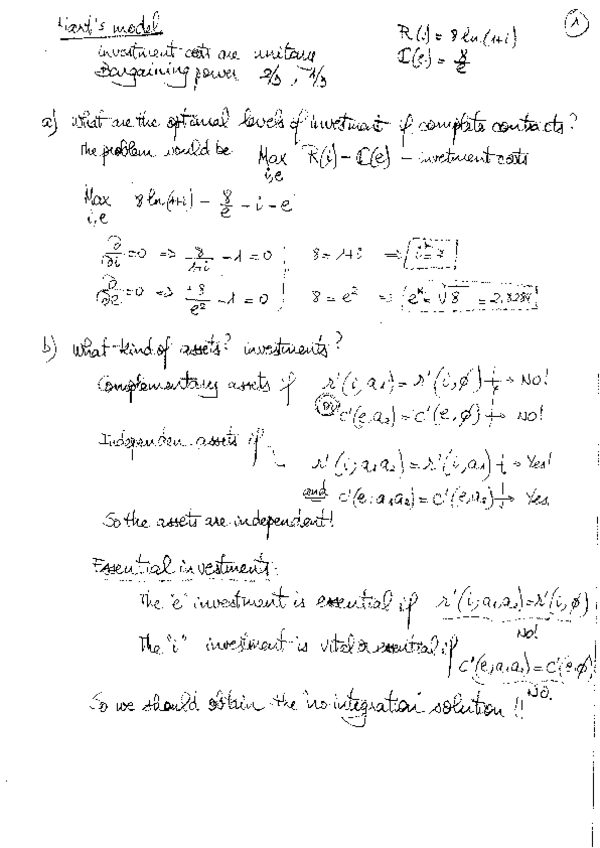 Hart's model
investment costs are unitary
Bargaining power 2/3, 1/3
R(i) = 8 ln(1+i)
C(e) = 8/e
1
a) What are the optimal levels of investment if complete contracts?
The problem would be Max i,e R(i) - C(e) - invetment costs
Max i,e 8 ln(1+i) - 8/e - i - e
∂/∂i = 0 => 8/1+i - 1 = 0 ; 8 = 1+i => i* = 7
∂/∂e = 0 => +8/e² - 1 = 0 ; 8 = e² => e* = √8 = 2,8284
b) What kind of assets? investments?
Complementary assets if r'(i,a1) = r'(i,φ) → No!
or c'(e,a2) = c'(e,φ) → No!
Independen assets if
r'(i;a1,a2) = r'(i,a1) → Yes!
and c'(e;a1,a2) = c'(e,a2) → Yes.
So the assets are independent!
Essential investments:
The "e" investment is essential if r'(i;a1,a2) = r'(i,φ)
No!
The "i" investment is vital or essential if c'(e,a1,a2) = c'(e,φ)
No.
So we should obtain the "no integration" solution!!